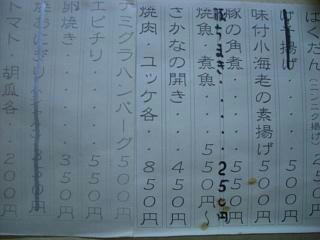 ばくだん(ニンニク揚げ
げ素揚げ・・・250円
味付小海老の素揚げ 500円
豚の角煮・・・・550円
豚ちまき 250円
焼魚・煮魚・・550円〜
さかなの開き・・450円
焼肉・ユッケ各・850円
デミグラハンバーグ 500円
エビチリ・・・・550円
卵焼き・・・・・350円
トマト・胡瓜各・200円